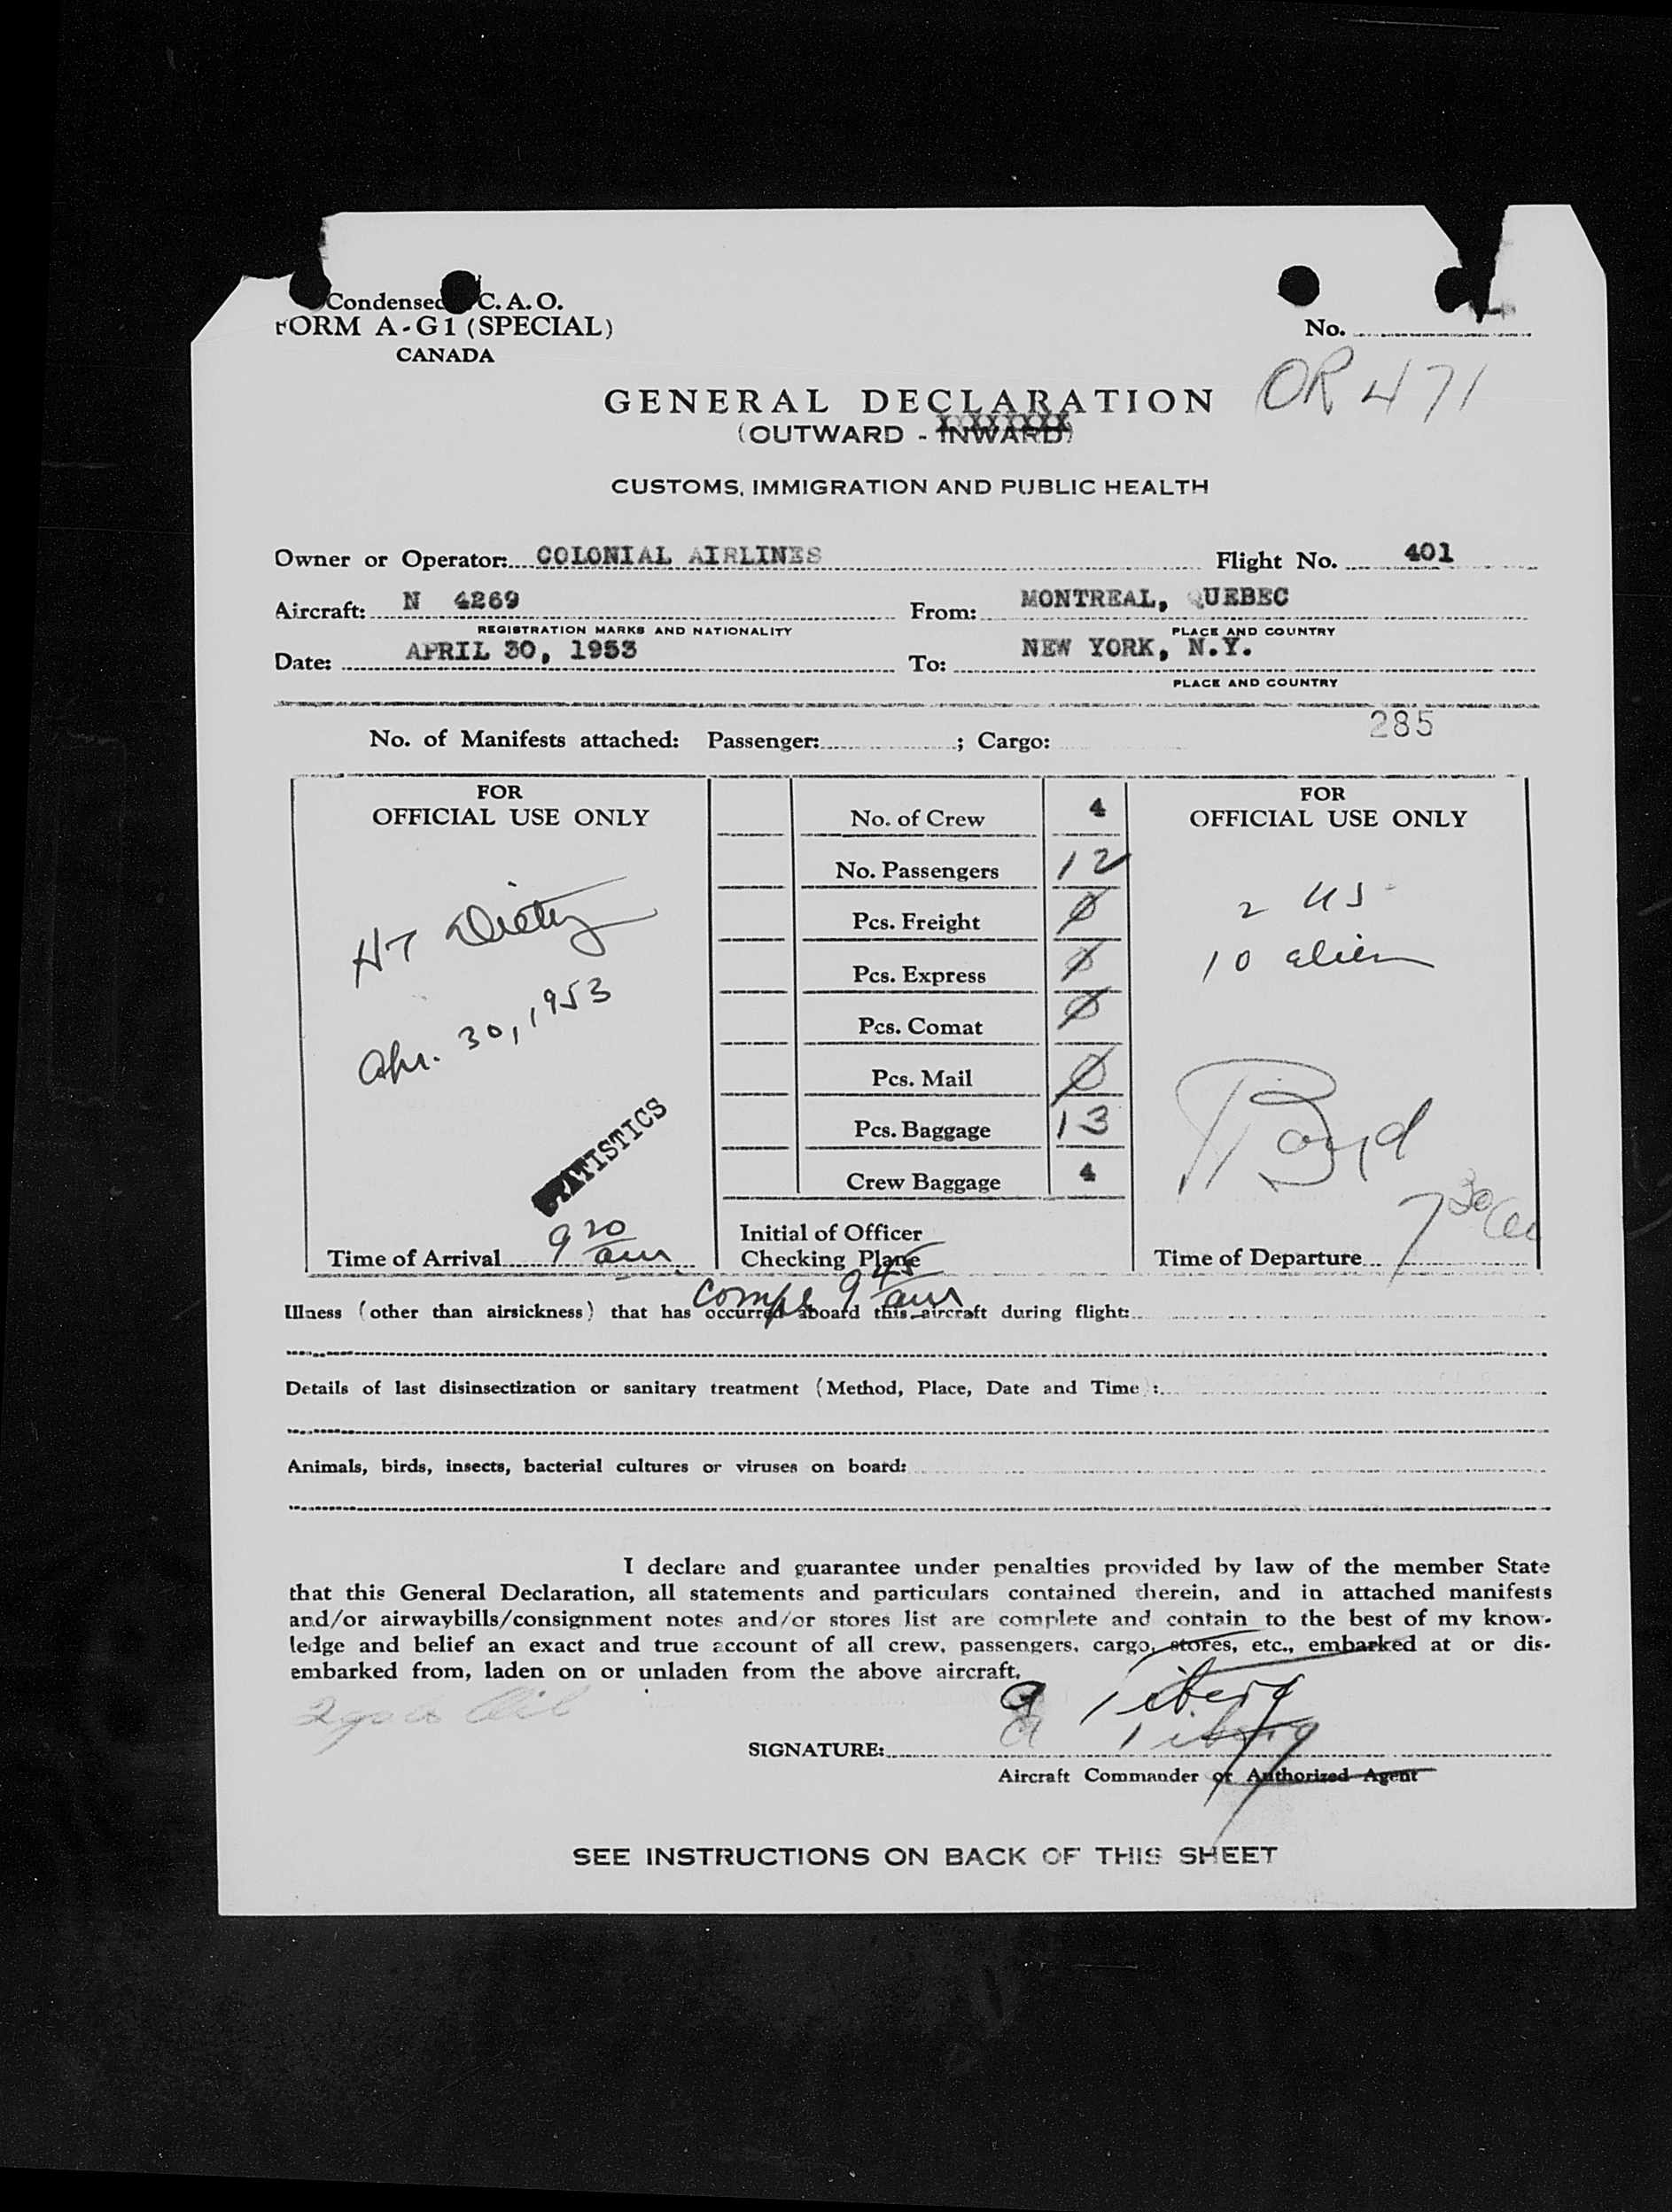 Condensed C. A. O.
FORM A-G1 (SPECIAL)
CANADA
No.
OR 471
GENERAL DECLARATION
(OUTWARD - INWARD)
CUSTOMS, IMMIGRATION AND PUBLIC HEALTH
Owner or Operator: COLONIAL AIRLINES Flight No. 401
Aircraft: N 4269 From: MONTREAL, QUEBEC
REGISTRATION MARKS AND NATIONALITY PLACE AND COUNTRY
Date: APRIL 30, 1953 To: NEW YORK, N.Y.
PLACE AND COUNTRY
285
No. of Manifests attached: Passenger: ; Cargo:
FOR
OFFICIAL USE ONLY
HT Dietz
Apr. 30, 1953
STATISTICS
Time of Arrival 9 20 am
No. of Crew 4
No. Passengers 12
Pcs. Freight 0
Pcs. Express 0
Pcs. Comat 0
Pcs. Mail 0
Pcs. Baggage 13
Crew Baggage 4
Initial of Officer
Checking Plane
Compl 9 45 am
FOR
OFFICIAL USE ONLY
2 US
10 alien
Boyd
Time of Departure 7 30
Illness (other than airsickness) that has occurred aboard this aircraft during flight:
Details of last disinsectization or sanitary treatment (Method, Place, Date and Time):
Animals, birds, insects, bacterial cultures or viruses on board:
I declare and guarantee under penalties provided by law of the member State
that this General Declaration, all statements and particulars contained therein, and in attached manifests
and/or airwaybills/consignment notes and/or stores list are complete and contain to the best of my know-
ledge and belief an exact and true account of all crew, passengers, cargo, stores, etc., embarked at or dis-
embarked from, laden on or unladen from the above aircraft.
SIGNATURE:
Aircraft Commander or Authorized Agent
SEE INSTRUCTIONS ON BACK OF THIS SHEET